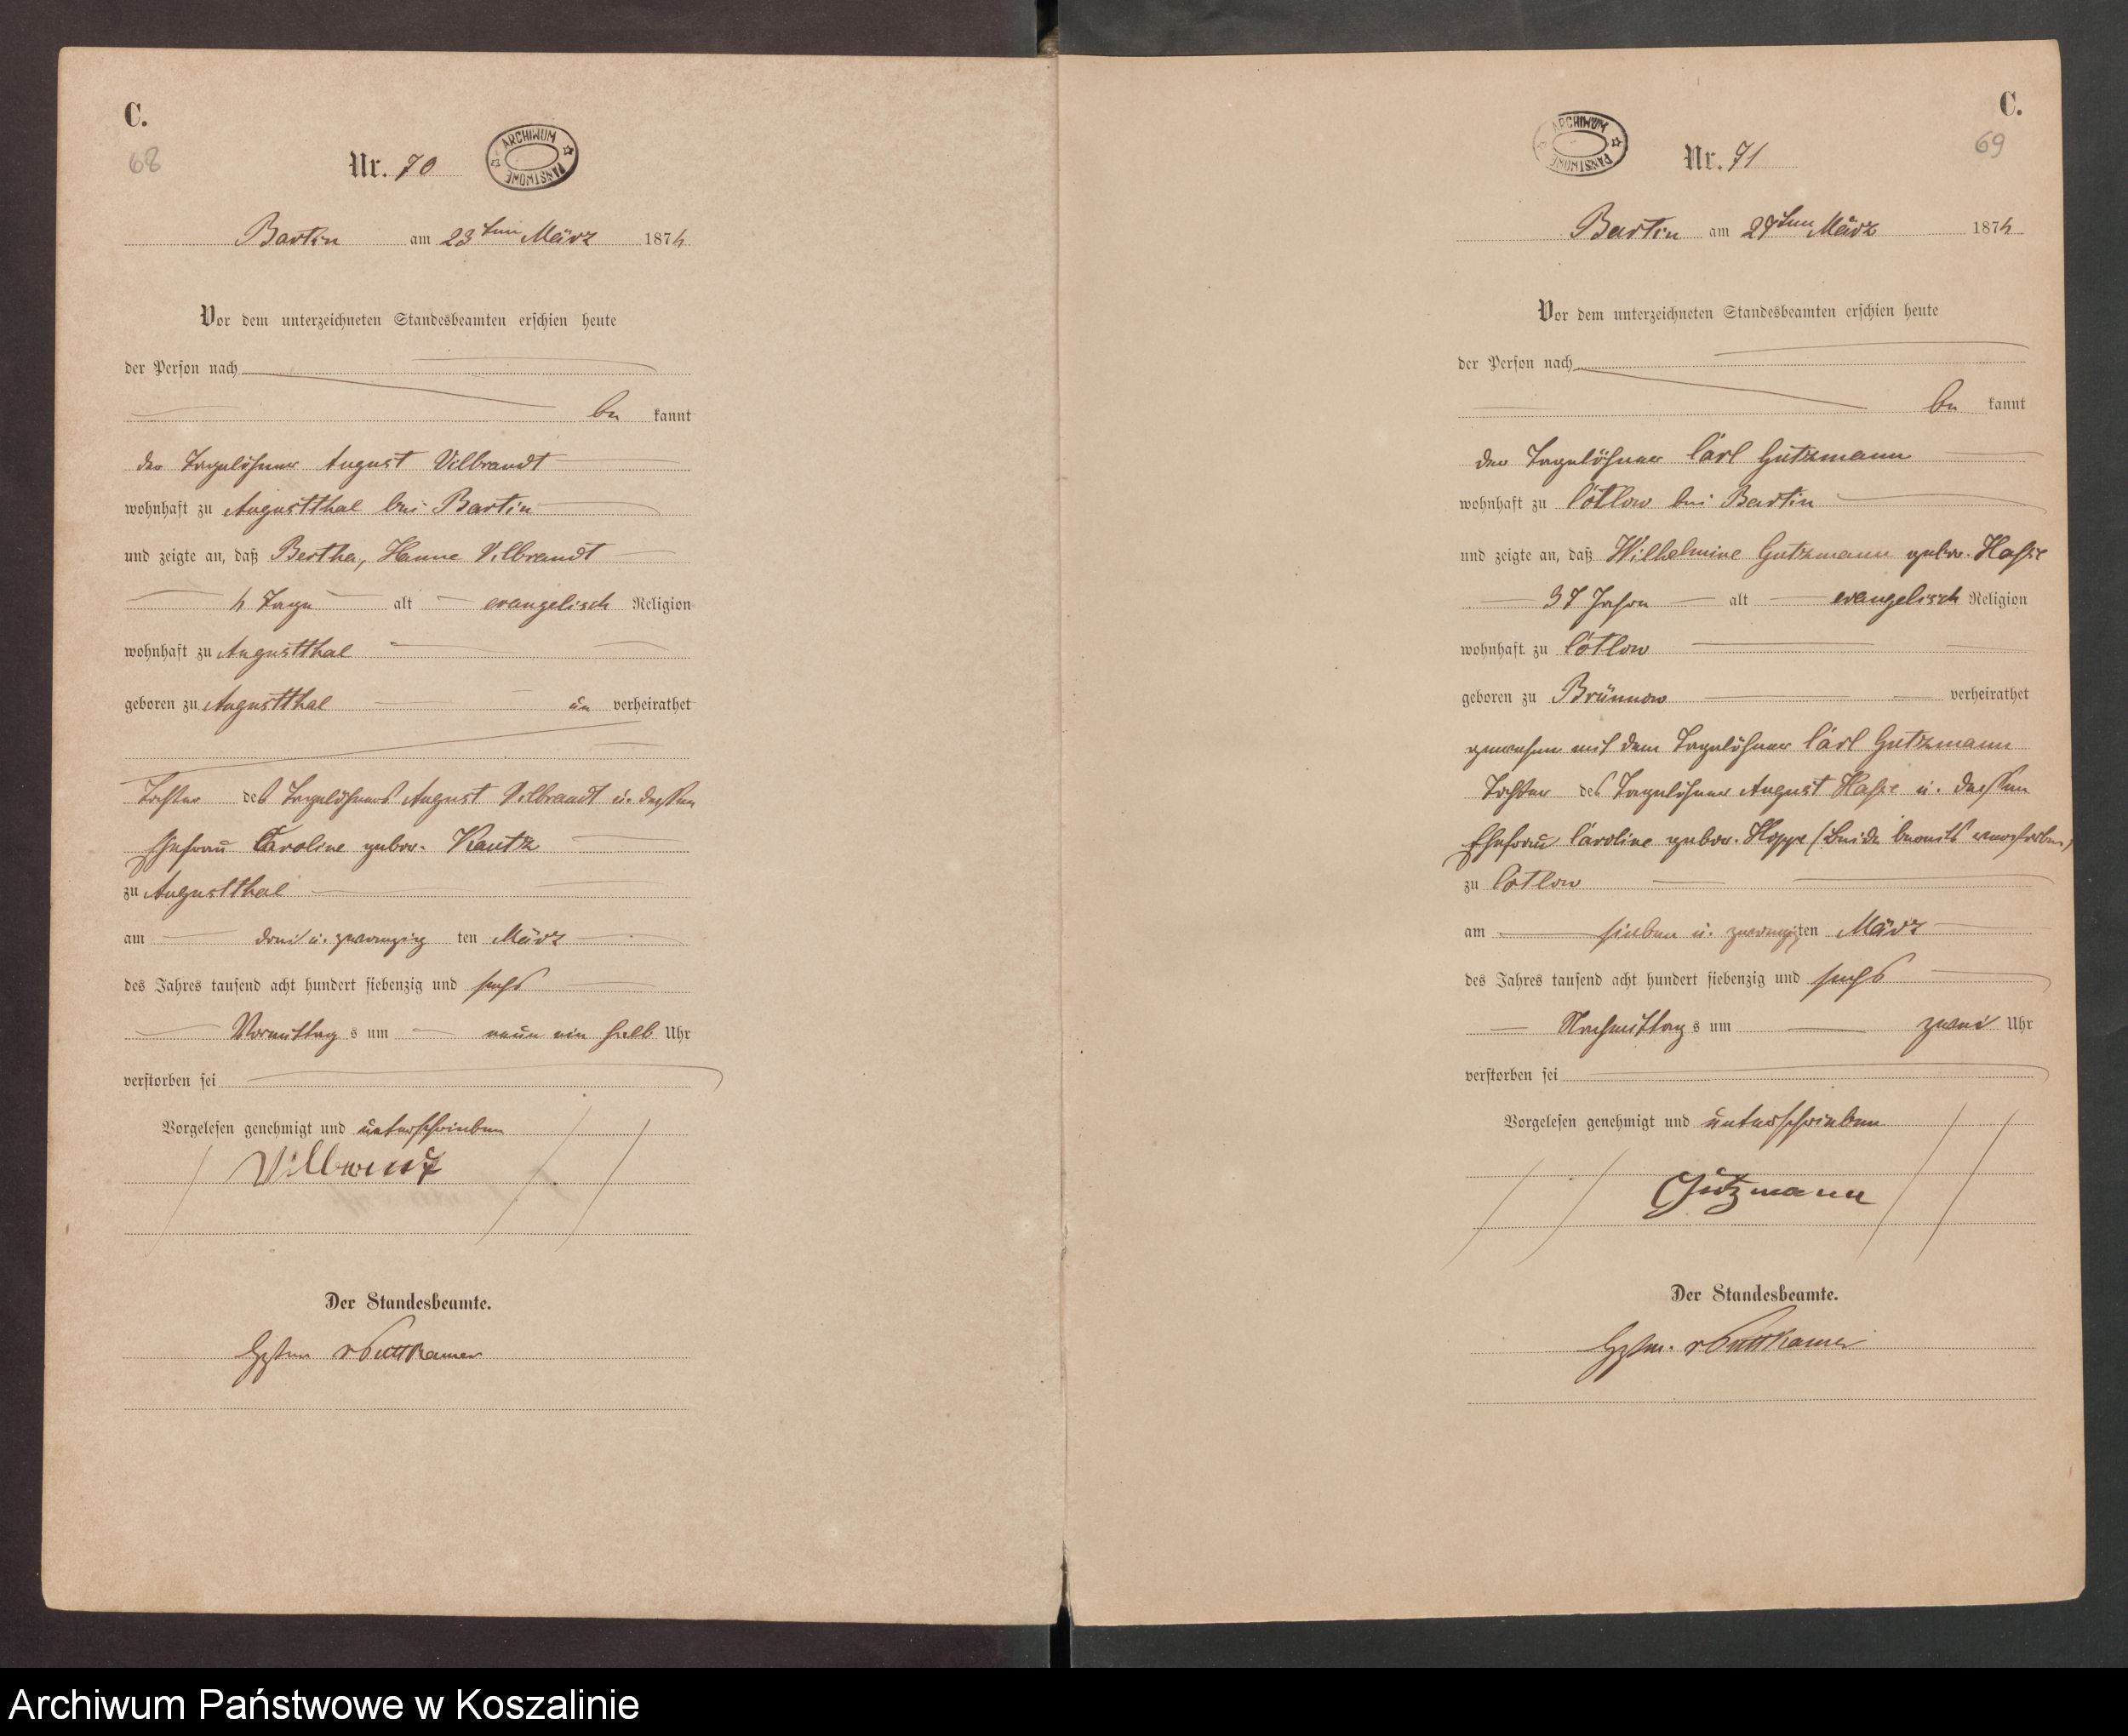 C.
68
Nr. 70
ARCHIWUM PAŃSTWOWE
Bartin am 23ten März 1876
Vor dem unterzeichneten Standesbeamten erschien heute
der Person nach
be kannt
der Tagelöhner August Vilbrandt
wohnhaft zu Augustthal bei Bartin
und zeigte an, daß Bertha, Hanne Vilbrandt
Tage alt evangelisch Religion
wohnhaft zu Augustthal
geboren zu Augustthal un verheirathet
Tochter des Tagelöhners August Vilbrandt u. dessen
Ehefrau Caroline gebor. Kautz
zu Augustthal
am drei u. zwanzig ten März
des Jahres tausend acht hundert siebenzig und sechs
Vormittag s um neun ein halb Uhr
verstorben sei
Vorgelesen genehmigt und unterschrieben
Vilbrandt
Der Standesbeamte.
v Puttkamer
C.
69
ARCHIWUM PAŃSTWOWE
Nr. 71
Bartin am 27ten März 1876
Vor dem unterzeichneten Standesbeamten erschien heute
der Person nach
be kannt
der Tagelöhner Carl Gutzmann
wohnhaft zu Cotlow bei Bartin
und zeigte an, daß Wilhelmine Gutzmann gebor. Hasse
37 Jahre alt evangelisch Religion
wohnhaft zu Cotlow
geboren zu Brünnow verheirathet
gewesen mit dem Tagelöhner Carl Gutzmann
Tochter des Tagelöhner August Hasse u. dessen
Ehefrau Caroline gebor. Hoppe (beide bereits verstorben)
zu Cotlow
am sieben u. zwanzigten März
des Jahres tausend acht hundert siebenzig und sechs
Nachmittag s um zwei Uhr
verstorben sei
Vorgelesen genehmigt und unterschrieben
Gutzmann
Der Standesbeamte.
v Puttkamer
Archiwum Państwowe w Koszalinie